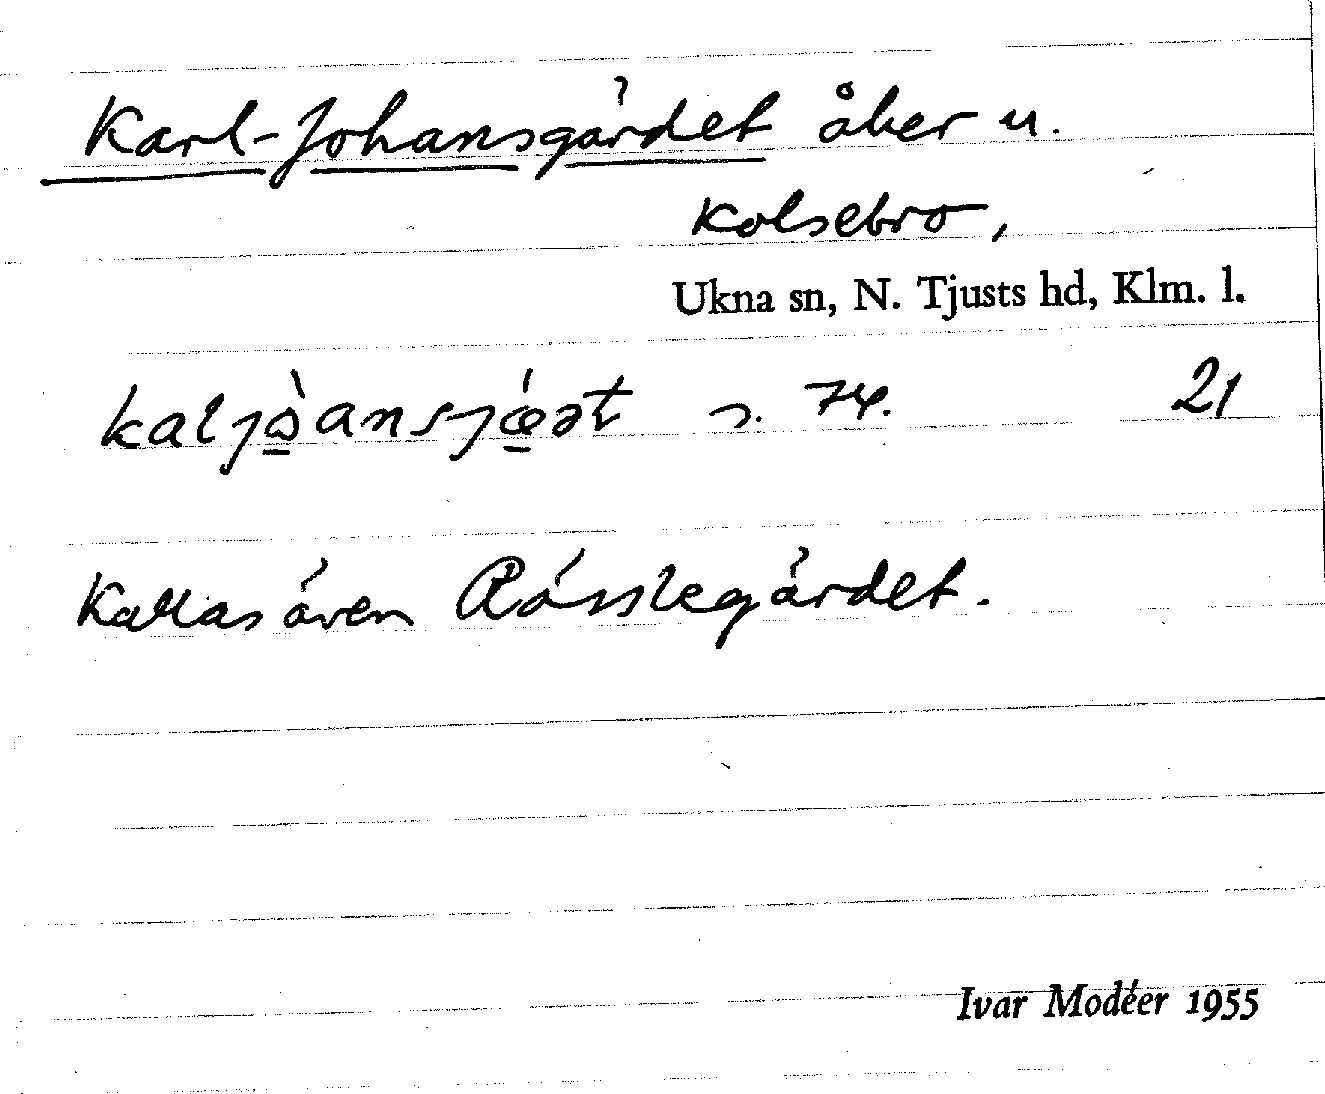 Karl-Johansgärdet åker u.
Kolsebro,
Ukna sn, N. Tjusts hd, Klm. l.
kaljò̱ansjœ̱́ət s. 74. 21
Kallas även Rösslegärdet.
Ivar Modéer 1955